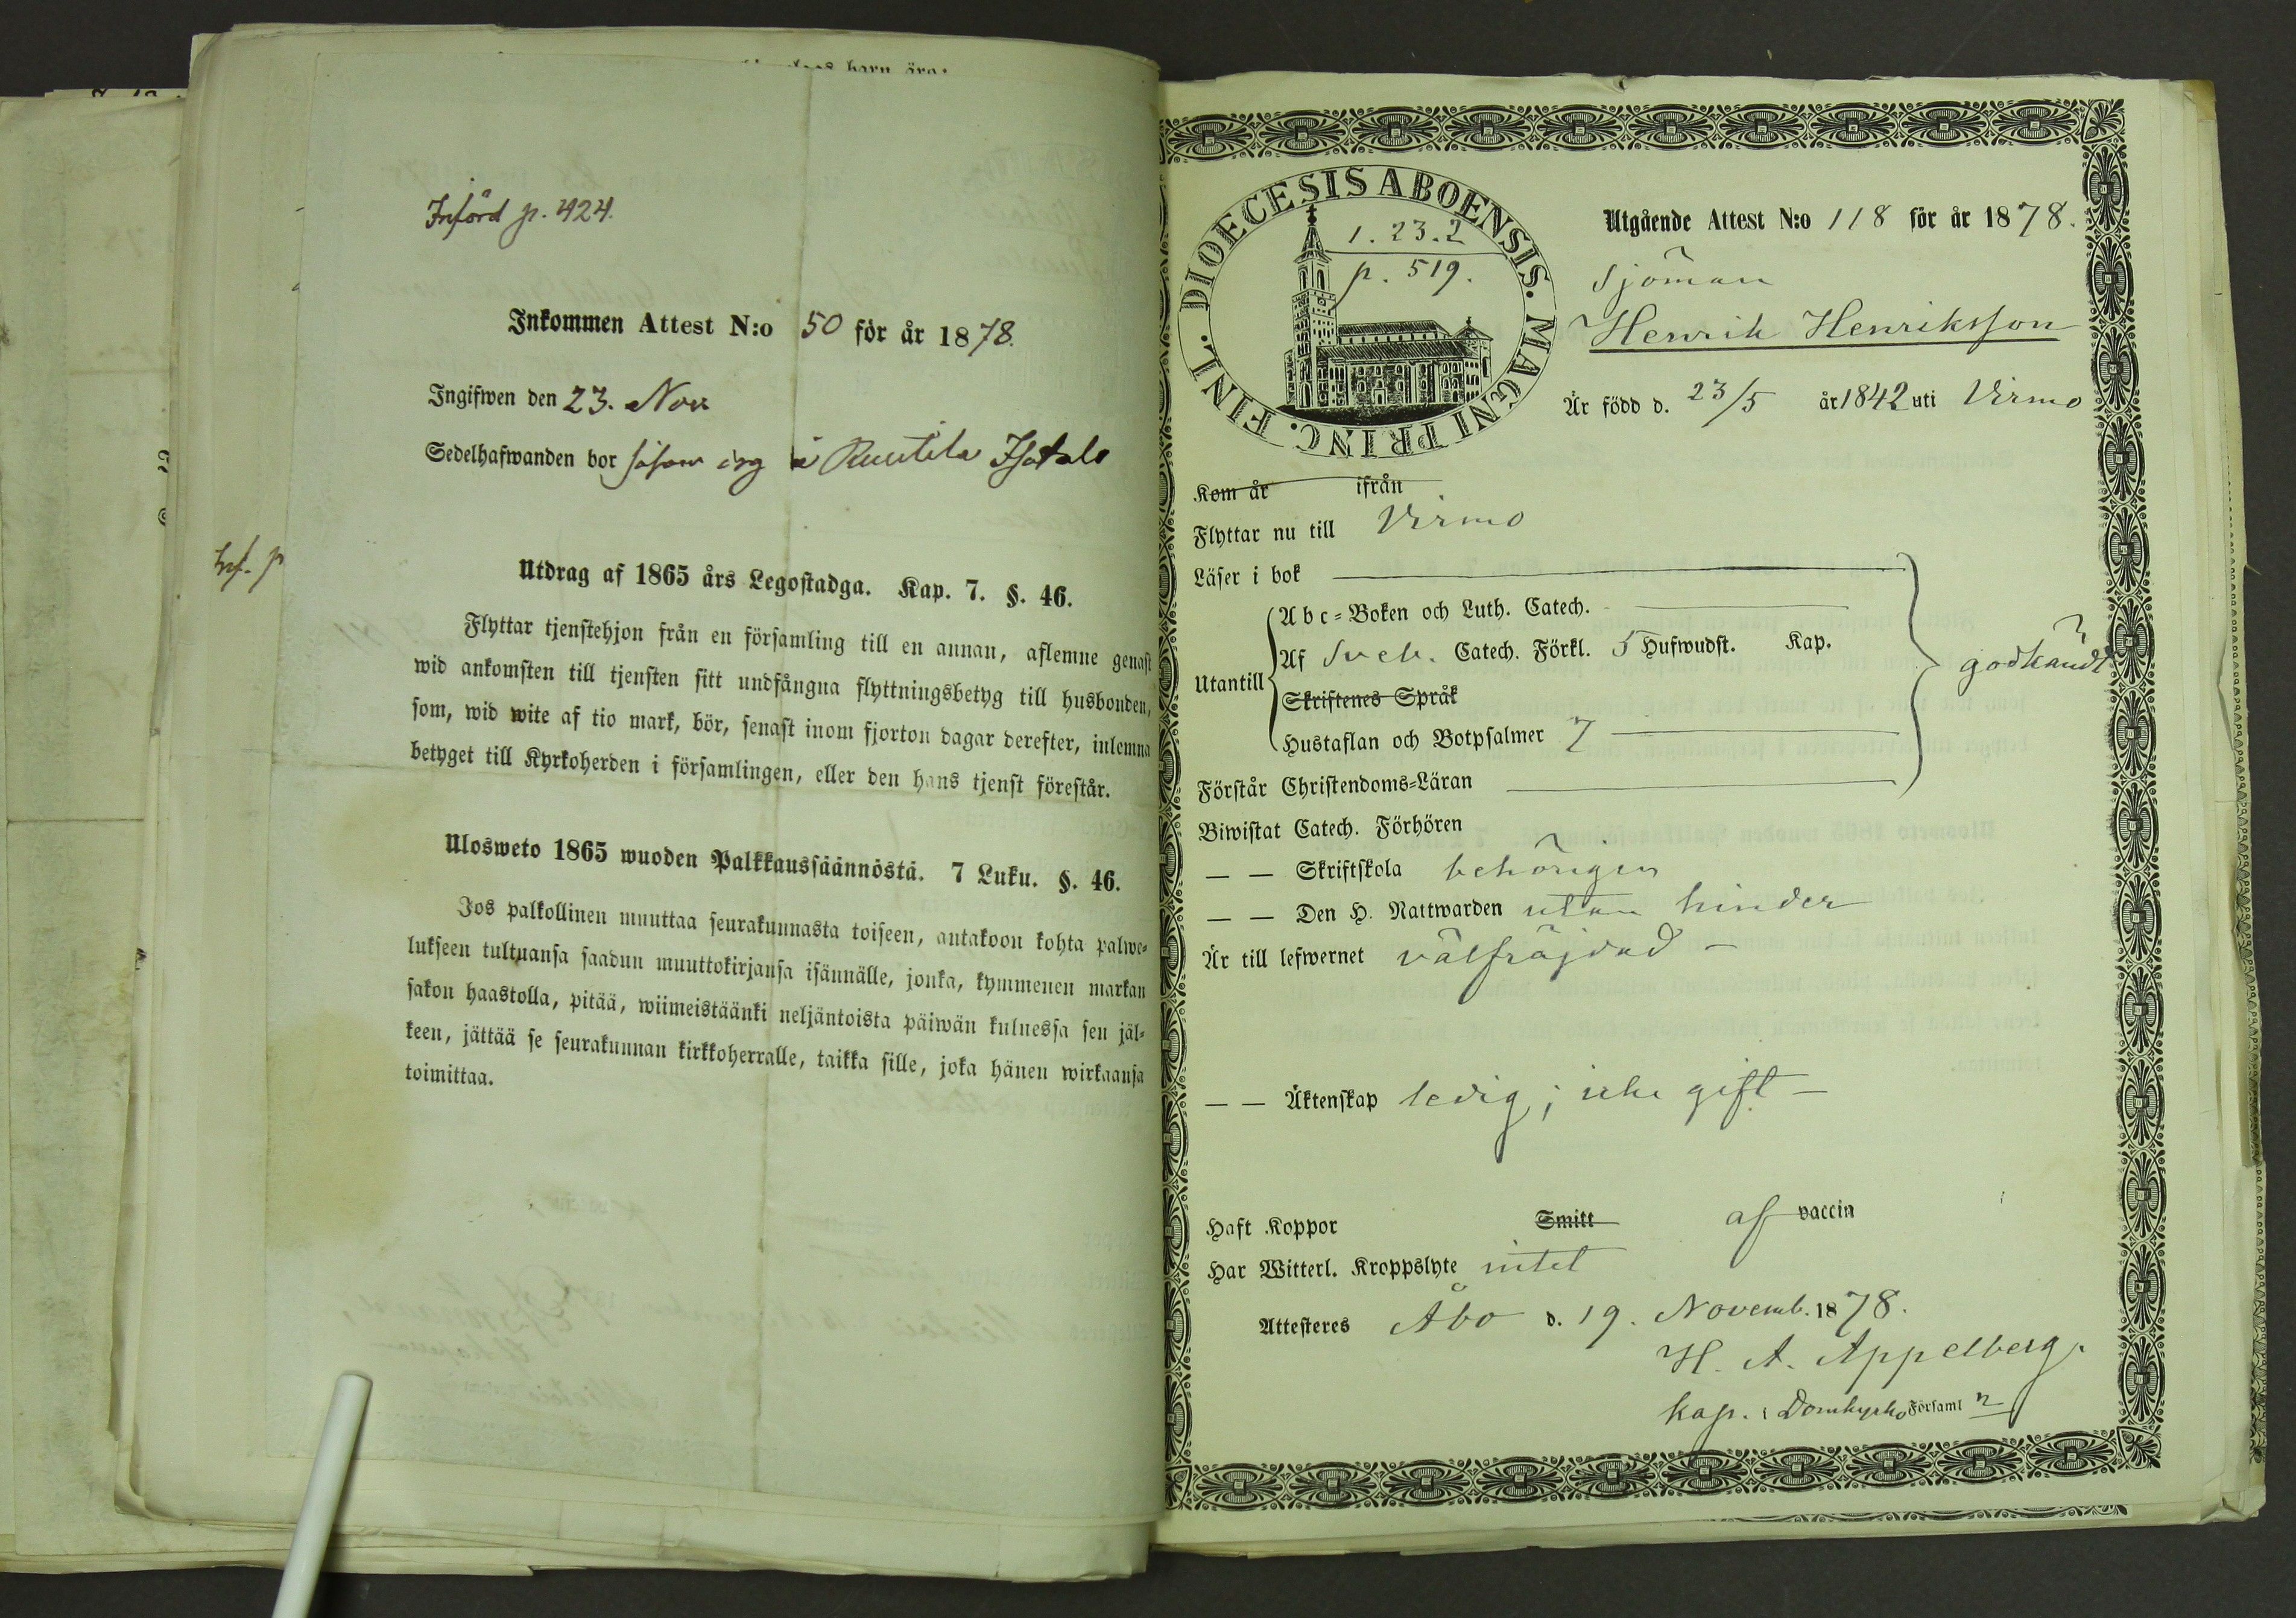 Införd p. 424.
Inkommen Attest N:o 50 för år 1878.
Ingifwen den 23. Nov
Sedelhafwanden bor såsom i Ruutila Isotalo
Inf. p
Utdrag af 1865 års Legostadga. Kap. 7. §. 46.
Flyttar tjenstehjon från en församling till en annan, aflemne genast
wid ankomsten till tjensten sitt undfångna flyttningsbetyg till husbonden,
som, wid wite af tio mark, bör, senast inom fjorton dagar derefter, inlemna
betyget till Kyrkoherden i församlingen, eller den hans tjenst förestår.
Ulosweto 1865 wuoden Palkkaussäännöstä. 7 Luku. §. 46.
Jos palkollinen muuttaa seurakunnasta toiseen, antakoon kohta palwe-
lukseen tultuansa saadun muuttokirjansa isännälle, jonka, kymmenen markan
sakon haastolla, pitää, wiimeistäänki neljäntoista päiwän kuluessa sen jäl-
keen, jättää se seurakunnan kirkkoherralle, taikka sille, joka hänen wirkaansa
toimittaa.
DIOECESIS ABOENSIS. MAGNI PRINC. FINL.
1. 23. 2
p. 519.
Utgående Attest N:o 118 för år 1878.
Sjöman
Henrik Henriksson
Är född d. 23/5 år 1842 uti Virmo
Kom år ifrån
Flyttar nu till Virmo
Läser i bok
Utantill
Abc-Boken och Luth. Catech.
Af Sveb. Catech. Förkl. 5 Hufwudst. Kap.
Skriftenes Språk
Hustaflan och Botpsalmer 7
godkändt
Förstår Christendoms-Läran
Biwistat Catech. Förhören
— — Skriftskola behörigen
— — Den H. Nattwarden utan hinder
Är till lefwernet välfräjdad —
— — Äktenskap ledig; icke gift —
Haft Koppor Smitt af vaccin
Har Witterl. Kroppslyte intet
Attesteres Åbo d. 19. Novemb. 1878.
H. A. Appelberg.
kap. i Domkyrko Församl n